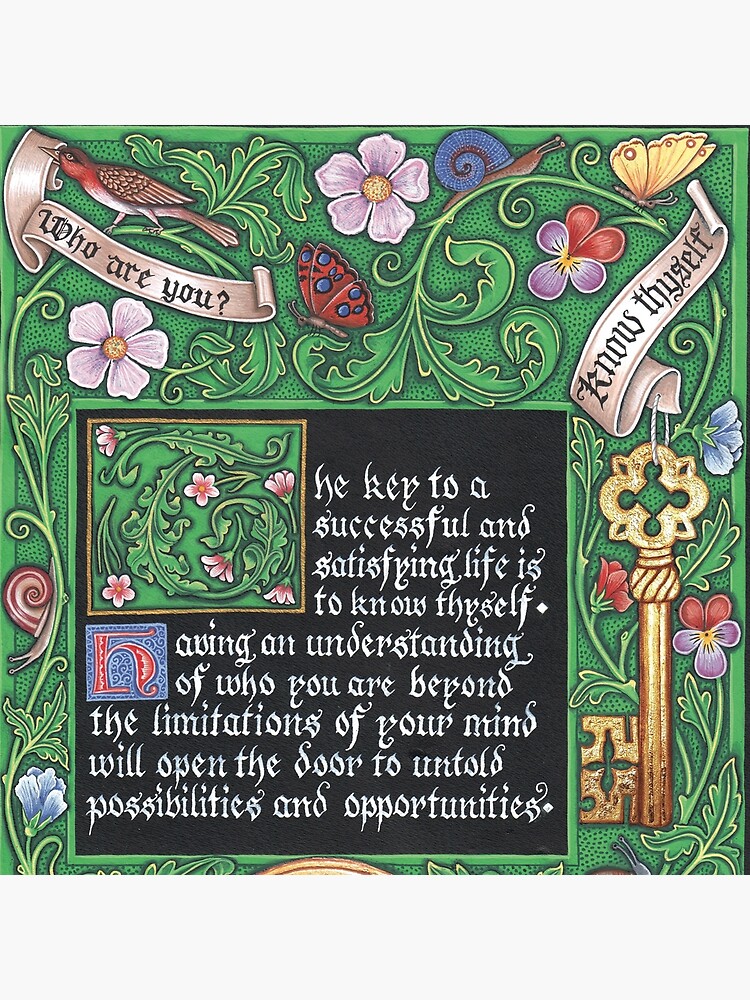 Who are you?
Know thyself
The key to a
successful and
satisfying life is
to know thyself.
Having an understanding
of who you are beyond
the limitations of your mind
will open the door to untold
possibilities and opportunities.